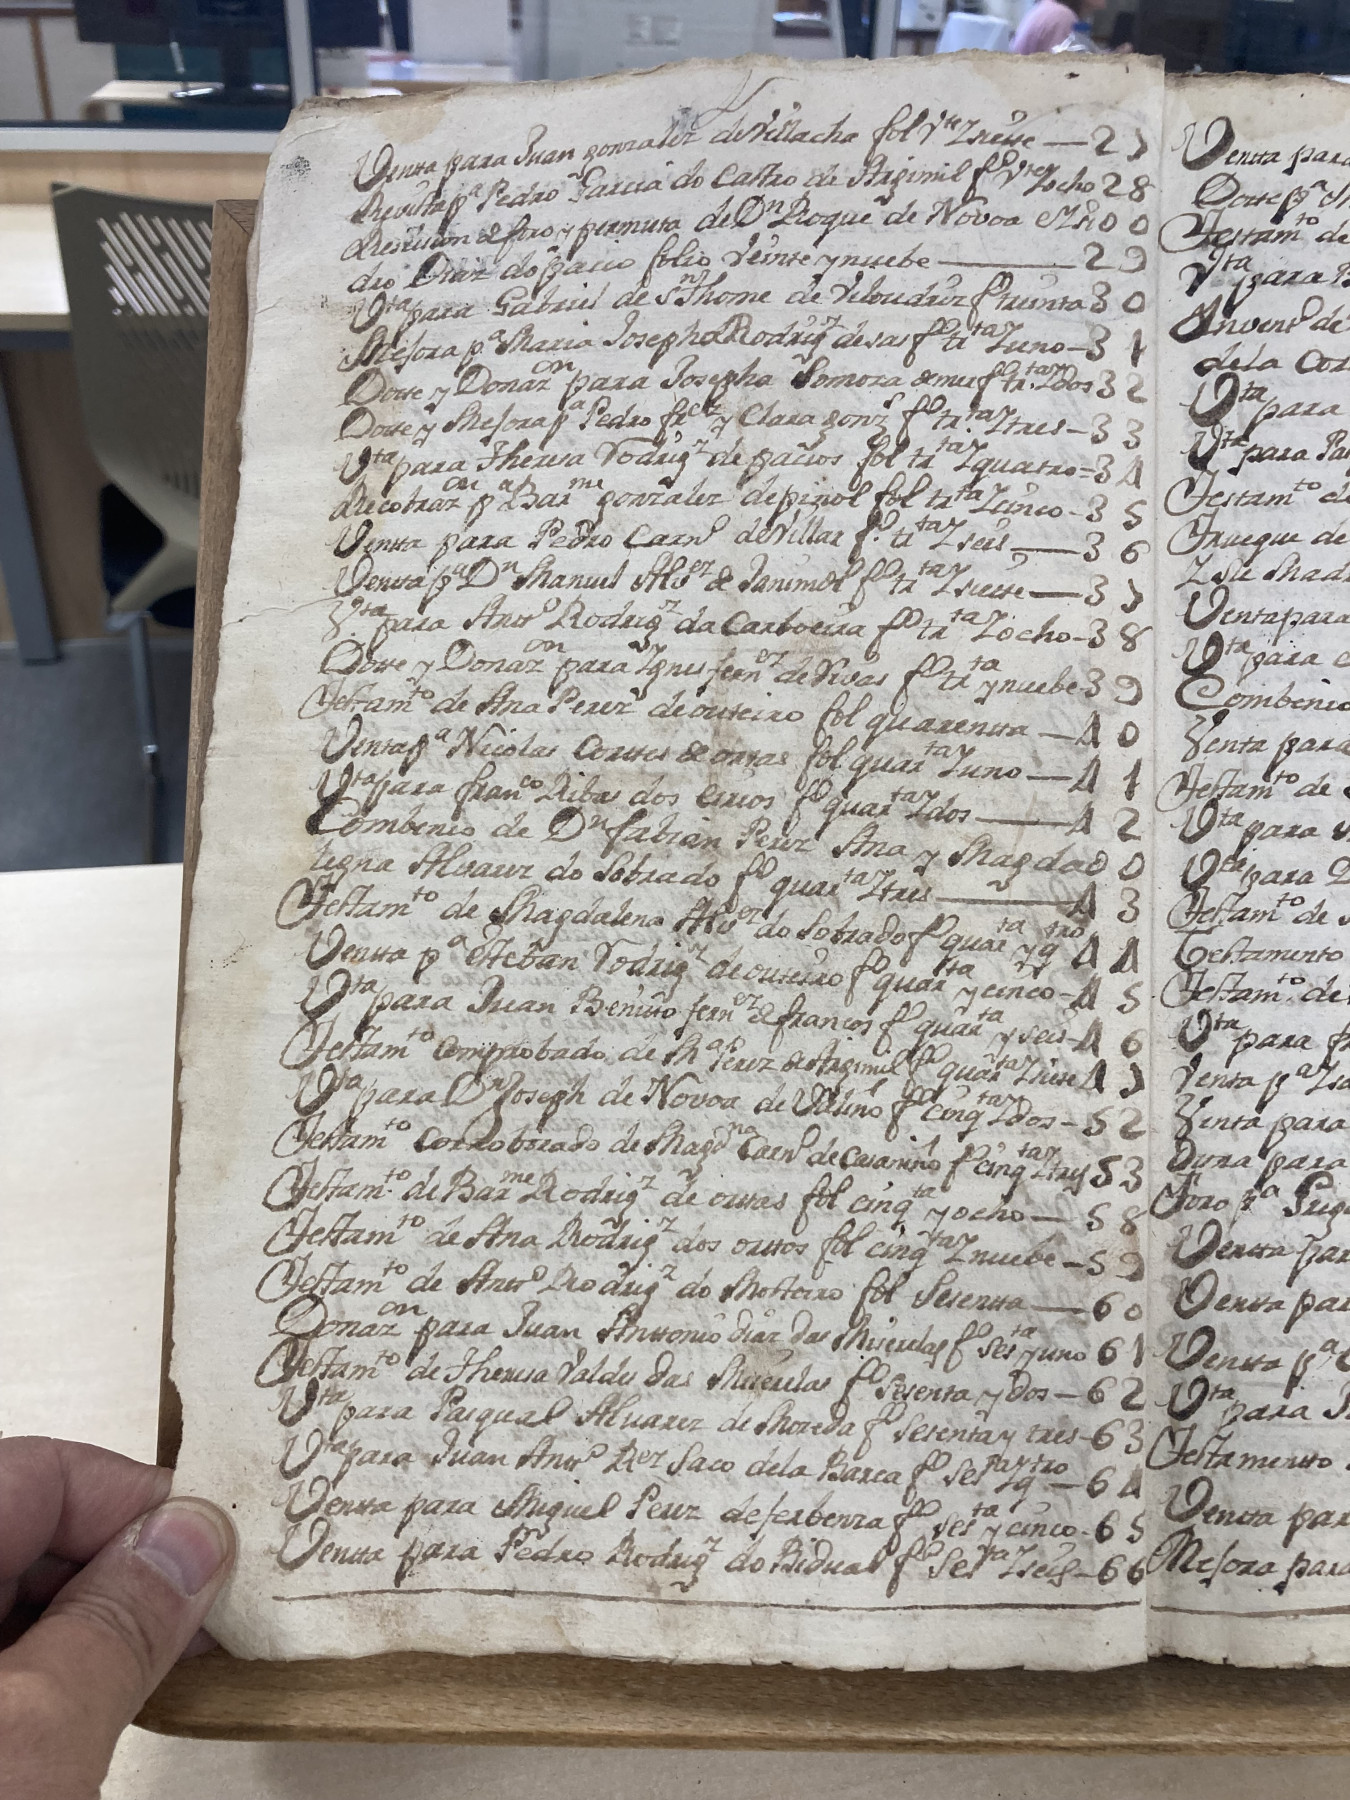 Venta para Juan gonzalez de Villacha fol Vte Zsiete — 27
Revista pa Pedro Garcia do Castro de Argimil fo Vte Zocho 28
de foro y permuta de Dn Roque de Novoa 00
dro Diaz do pacio folio Veinte y nuebe — 29
Vta para Gabriel de Sn thome de Veloudriz fo treinta 30
Mejora pa Maria Josepha Rodrigz de sas fo trita Zuno - 31
Dotte y Donazon para Josepha Somoza fo trta Zdos 32
Dotte y Mejora pa Pedro frez y Clara gonz fo trta Ztres - 33
Vta para Theresa Rodrigz de pacios fol trta Zquatro - 34
Recobrazon pa Barme gonzalez de piñol fol trta Zcinco - 35
Venta para Pedro Carnl de Villar fo trta Zseis — 36
Venta pa Dn Manuel Alvez de fo trta Zsiete — 37
Vta para Antto Rodrigz da Carboeira fo trta Zocho - 38
Dotte y Donazon para Ygnes fernez de Vivas fo trta y nuebe 39
Testamto de Ana Perez de outeiro fol quarentta — 40
Venta pa Nicolas Cortes de ortas fol quarta Zuno — 41
Vta para franco Ribas dos Eirios fo quarta Zdos — 42
Combenio de Dn fabian Perez Ana y Magda 00
legna Alvarez do Sobrado fo quarta Ztres — 43
Testamto de Magdalena Alvez do Sobrado fo quarta y qtro 44
Venta pa Esteban Rodrigz de outeiro fo quarta y cinco - 45
Vta para Juan Benito fernez de francos fo quarta y seis - 46
Testamto Comprobado de Ma Perez de Argimil fo quarta Zsiete 47
Vta para Dn Joseph de Novoa de fo cinqta Zdos - 52
Testamto Corroborado de Magdna Carnl de Casariño fo cinqta Ztres 53
Testamto de Barme Rodrigz de ortas fol cinqta y ocho — 58
Testamto de Ana Rodrigz dos ortos fol cinqta Znuebe - 59
Testamto de Antto Rodrigz do Mosteiro fol Sesentta — 60
Donazon para Juan Anttonio diaz das Mirelas fo Sesta y uno 61
Testamto de Theresa Valdes das fo Sesenta y dos — 62
Vta para Pasqual Alvarez de Moreda fo Sesenta y tres - 63
Vta para Juan Antto Rez Saco de la Barca fo Sesta Zqtro — 64
Venta para Miguel Perez de ferbenza fo Sesta y cinco - 65
Venta para Pedro Rodrigz do Bidual fo Sesta Zseis - 66
Venta para
Dotte pa
Testamto de
Vta para
de
de la
Vta para
Vta para
Testamto de
Trueque de
Venta para
Vta para
Combenio
Venta para
Testamto de
Vta para
Vta para
Testamto de
Testamento
Testamto de
Vta para
Venta pa
Venta para
para
foro pa
Venta par
Venta par
Venta pa
Vta para
Testamento
Venta par
Mejora para